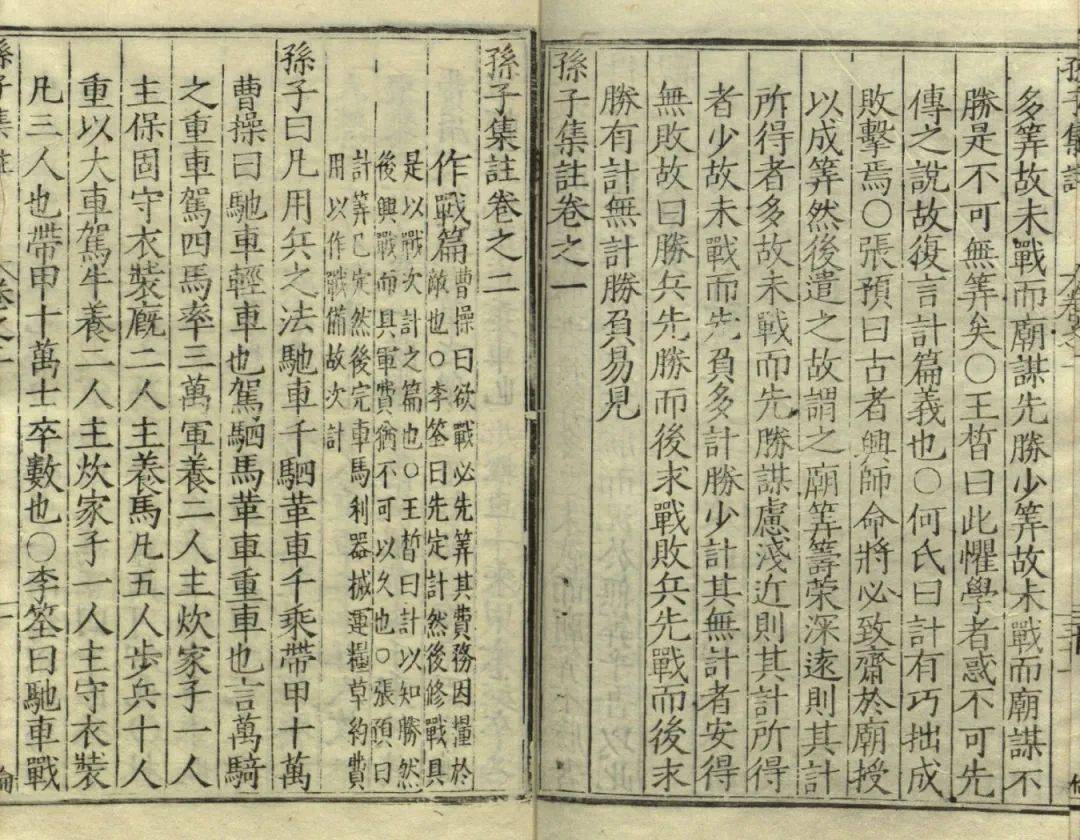 孫子集註
多筭故未戰而廟謀先勝少筭故未戰而廟謀不
勝是不可無筭矣○王晳曰此懼學者惑不可先
傳之說故復言計篇義也○何氏曰計有巧拙成
敗擊焉○張預曰古者興師命將必致齋於廟授
以成筭然後遣之故謂之廟筭籌荣深遠則其計
所得者多故未戰而先勝謀慮淺近則其計所得
者少故未戰而先負多計勝少計其無計者安得
無敗故曰勝兵先勝而後求戰敗兵先戰而後求
勝有計無計勝負易見
孫子集註卷之一
孫子集註卷之二
作戰篇
曹操曰欲戰必先筭其費務因糧於
敵也○李筌曰先定計然後修戰具
是以戰次計之篇也○王晳曰計以知勝然
後興戰而具軍費猶不可以久也○張預曰
計筭已定然後完車馬利器械運糧草約費
用以作戰備故次計
孫子曰凡用兵之法馳車千駟革車千乘帶甲十萬
曹操曰馳車輕車也駕駟馬革車重車也言萬騎
之重車駕四馬率三萬軍養二人主炊家子一人
主保固守衣裝廐二人主養馬凡五人步兵十人
重以大車駕牛養二人主炊家子一人主守衣裝
凡三人也帶甲十萬士卒數也○李筌曰馳車戰
孫子集註 卷之二 一